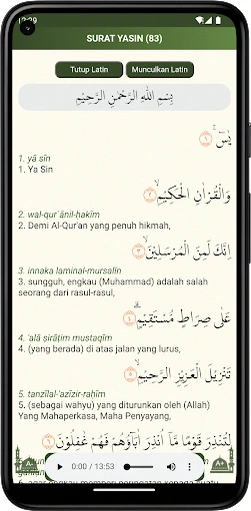 12:29
SURAT YASIN (83)
Tutup Latin
Munculkan Latin
بِسْمِ اللّٰهِ الرَّحْمٰنِ الرَّحِيْمِ
يٰسۤ ۚ ١
1. yā sīn
1. Ya Sin
وَالْقُرْاٰنِ الْحَكِيْمِۙ ٢
2. wal-qur`ānil-ḥakīm
2. Demi Al-Qur'an yang penuh hikmah,
اِنَّكَ لَمِنَ الْمُرْسَلِيْنَۙ ٣
3. innaka laminal-mursalīn
3. sungguh, engkau (Muhammad) adalah salah
seorang dari rasul-rasul,
عَلٰى صِرَاطٍ مُّسْتَقِيْمٍۗ ٤
4. 'alā ṣirāṭim mustaqīm
4. (yang berada) di atas jalan yang lurus,
تَنْزِيْلَ الْعَزِيْزِ الرَّحِيْمِۙ ٥
5. tanzīlal-'azīzir-raḥīm
5. (sebagai wahyu) yang diturunkan oleh (Allah)
Yang Mahaperkasa, Maha Penyayang,
لِتُنْذِرَ قَوْمًا مَّآ اُنْذِرَ اٰبَاۤؤُهُمْ فَهُمْ غٰفِلُوْنَ
0:00 / 13:53